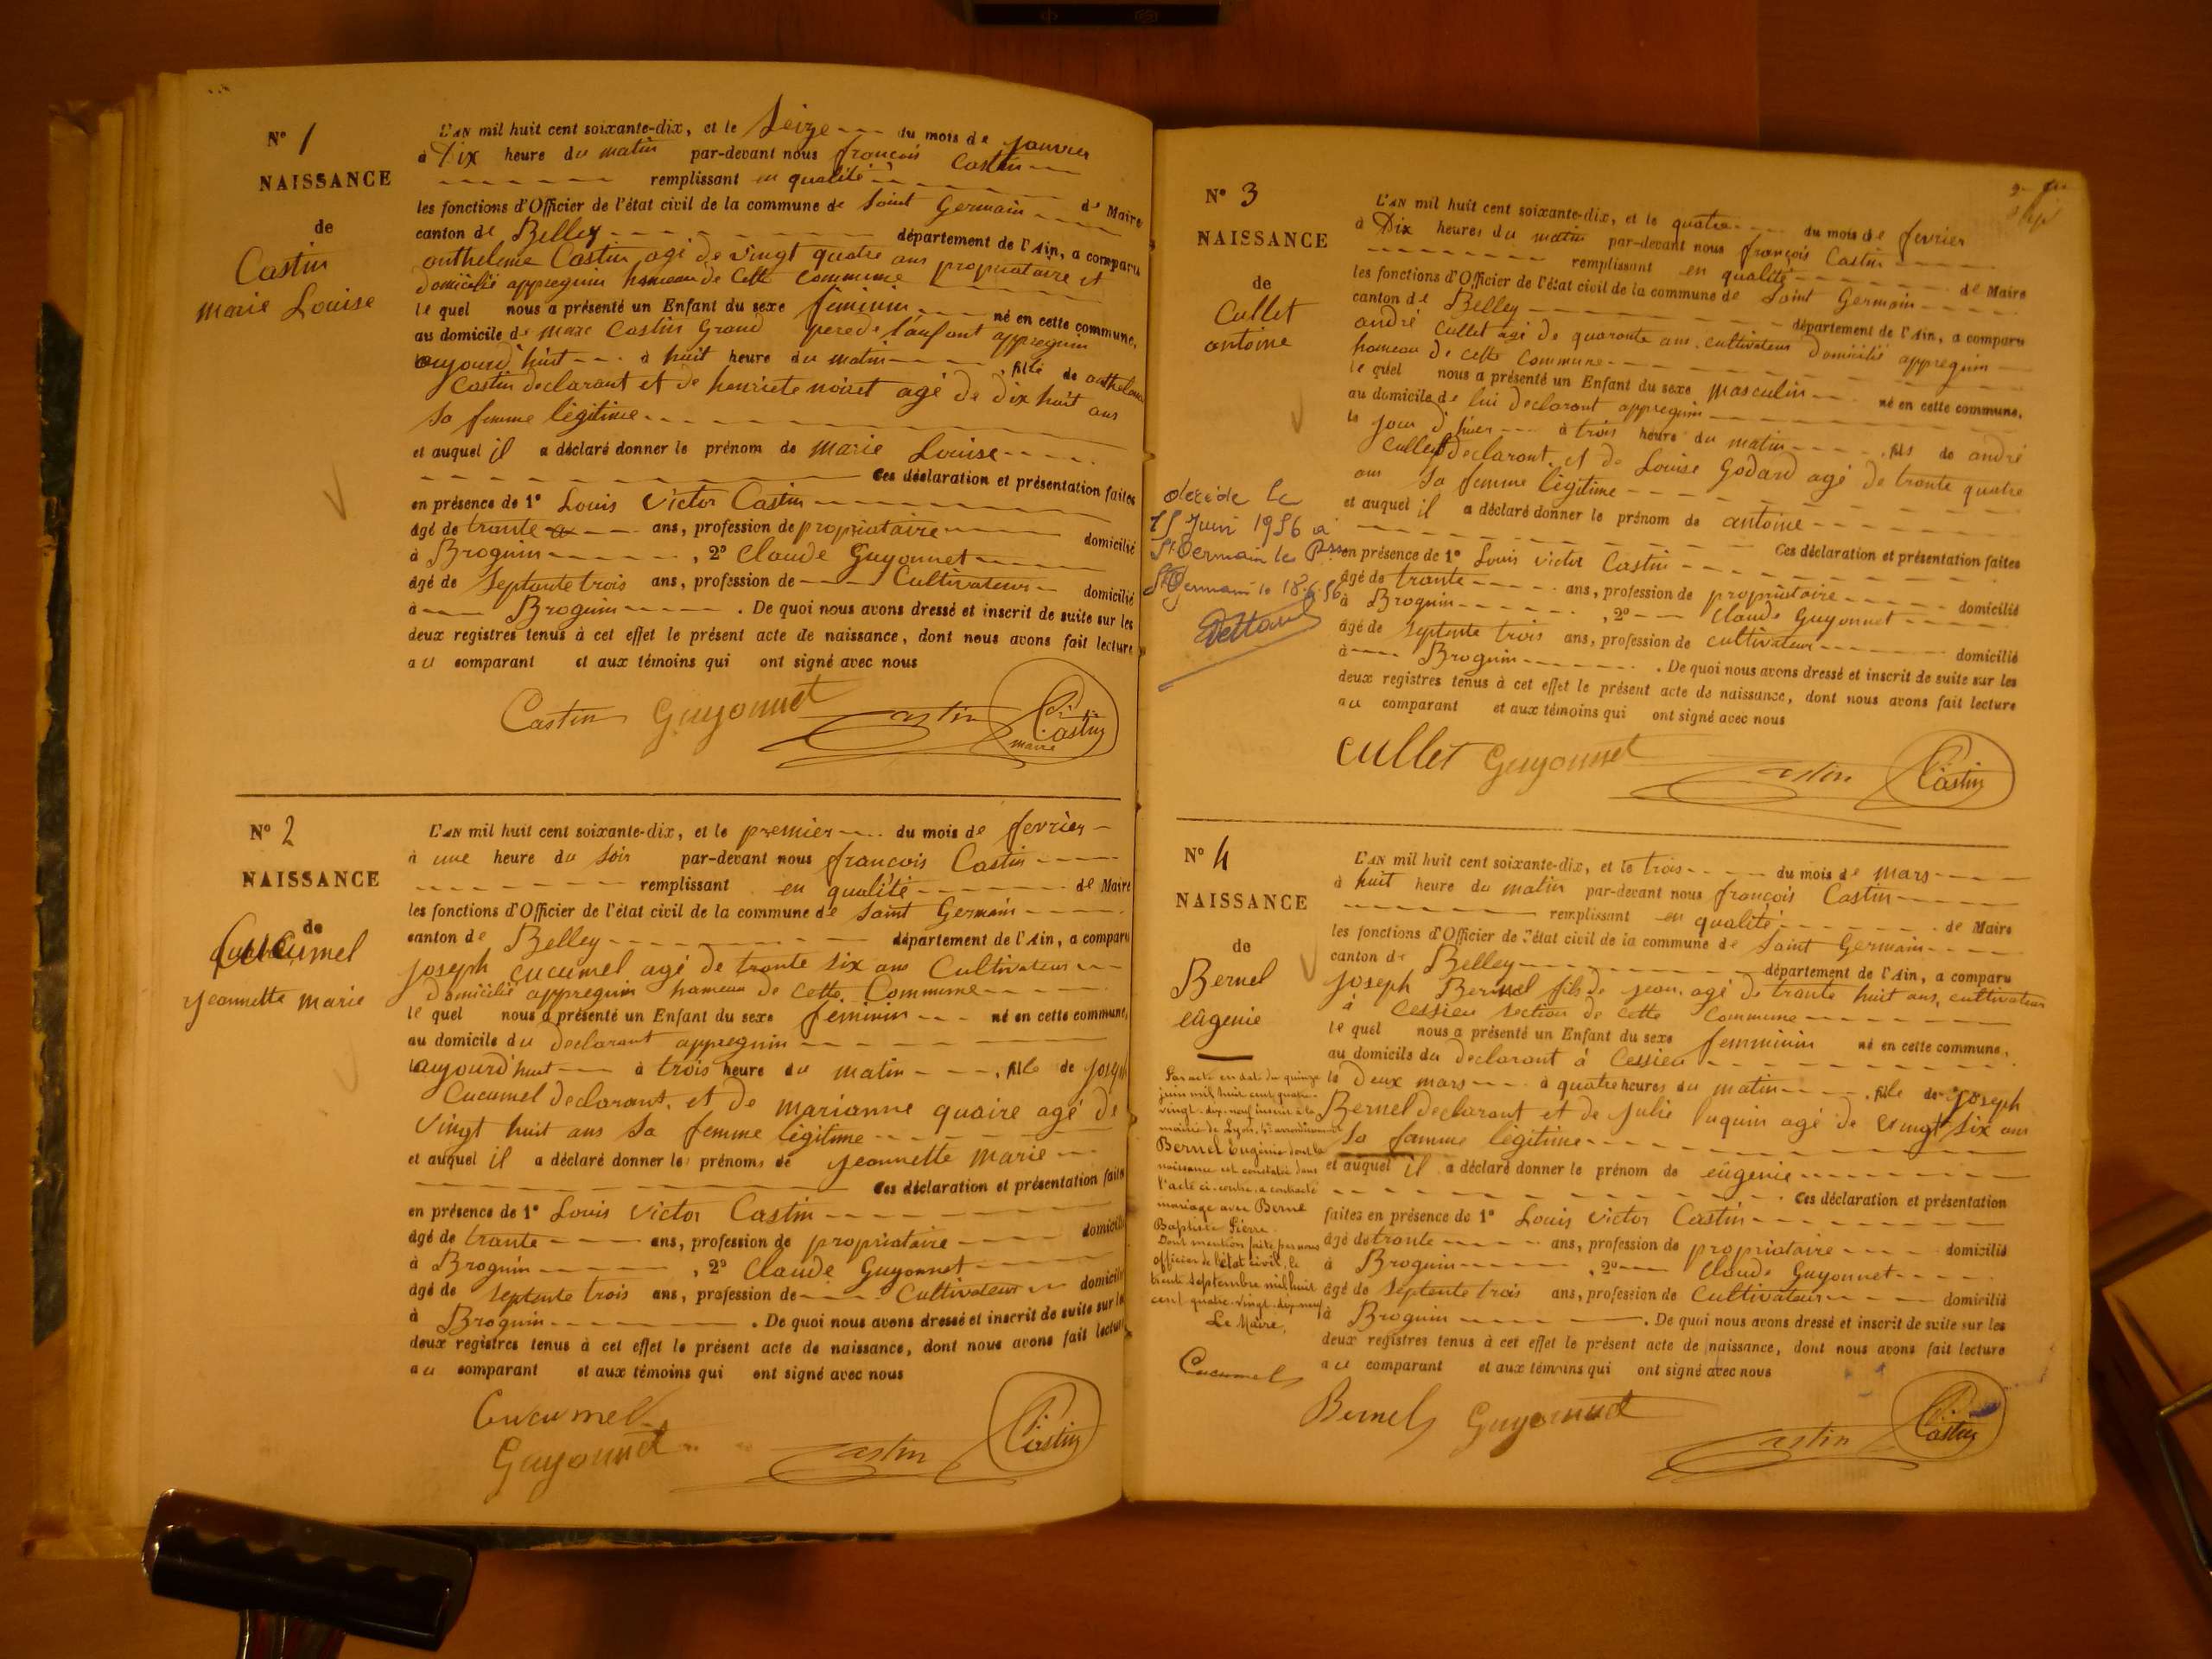 N° 1
NAISSANCE
de
Castin
marie Louise
L'AN mil huit cent soixante-dix, et le Seize du mois de janvier
à Dix heure du matin par-devant nous françois Castin
remplissant en qualité de Maire
les fonctions d'Officier de l'état civil de la commune de Saint Germain
canton de Belley département de l'Ain, a comparu
anthelme Castin agé de vingt quatre ans propriataire et
domicilié appregnin hameau de Cette Commune
le quel nous a présenté un Enfant du sexe feminin né en cette commune,
au domicile de marc Castin Grand pere de l'anfant appregnin
aujourd'huit à huit heure du matin fille de anthelme
Castin declarant et de henriete noiret agé de dix huit ans
Sa femme légitime
et auquel il a déclaré donner le prénom de marie Louise
Ces déclaration et présentation faites
en présence de 1° Louis Victor Castin
âgé de trante ans, profession de propriataire domicilié
à Brognin , 2° Claude Guyonnet
âgé de Septente trois ans, profession de Cultivateur domicilié
à Brognin . De quoi nous avons dressé et inscrit de suite sur les
deux registres tenus à cet effet le présent acte de naissance, dont nous avons fait lecture
au comparant et aux témoins qui ont signé avec nous
Castin Guyonnet Castin Castin
maire
N° 2
NAISSANCE
de
Cucumel
jeannette marie
L'AN mil huit cent soixante-dix, et le premier du mois de fevrier
à une heure du Soir par-devant nous françois Castin
remplissant en qualité de Maire
les fonctions d'Officier de l'état civil de la commune de Saint Germain
canton de Belley département de l'Ain, a comparu
joseph cucumel agé de trante six ans Cultivateur
Domicilié appregnin hameau de Cette Commune
le quel nous a présenté un Enfant du sexe feminin né en cette commune,
au domicile du declarant appregnin
aujourd'huit à trois heure du matin fille de joseph
Cucumel Declarant, et de marianne quaire agé de
vingt huit ans Sa femme légitime
et auquel il a déclaré donner le prénoms de jeannette marie
Ces déclaration et présentation faites
en présence de 1° Louis victor Castin
âgé de trante ans, profession de propriataire domicilié
à Brognin , 2° Claude Guyonnet
âgé de Septente trois ans, profession de Cultivateur domicilié
à Brognin . De quoi nous avons dressé et inscrit de suite sur les
deux registres tenus à cet effet le présent acte de naissance, dont nous avons fait lecture
au comparant et aux témoins qui ont signé avec nous
Cucumel
Guyonnet Castin Castin
N° 3
NAISSANCE
de
Cullet
antoine
décédé le
15 Juin 1956 à
St Germain les P
St Germain le 18.6.56
L'AN mil huit cent soixante-dix, et le quatre du mois de fevrier
à Dix heures du matin par-devant nous françois Castin
remplissant en qualité de Maire
les fonctions d'Officier de l'état civil de la commune de Saint Germain
canton de Belley département de l'Ain, a comparu
andré Cullet agé de quaronte ans cultivateur Domicilié appregnin
hameau de cette Commune
le quel nous a présenté un Enfant du sexe masculin né en cette commune,
au domicile de lui declarant appregnin
le jour d'hier à trois heure du matin fils de andré
Cullet declarant, et de Louise Godard agé de trante quatre
ans Sa femme légitime
et auquel il a déclaré donner le prénom de antoine
Ces déclaration et présentation faites
en présence de 1° Louis victor Castin
âgé de trante ans, profession de propriataire domicilié
à Brognin , 2° Claude Guyonnet
âgé de Septente trois ans, profession de cultivateur domicilié
à Brognin . De quoi nous avons dressé et inscrit de suite sur les
deux registres tenus à cet effet le présent acte de naissance, dont nous avons fait lecture
au comparant et aux témoins qui ont signé avec nous
Cullet Guyonnet Castin Castin
N° 4
NAISSANCE
de
Bernel
eûgenie
Par acte en date du quinze
juin mil huit cent quatre
vingt-dix-neuf inscrit à la
mairie de Lyon, arrondissement
Bernel Eugénie dont la
naissance est constatée dans
l'acte ci-contre, a contracté
mariage avec Berne
Baptiste Pierre.
Dont mention faite par nous
officier de l'état civil, le
trente septembre mil huit
cent quatre-vingt-dix-neuf
Le Maire,
Cucumel
L'AN mil huit cent soixante-dix, et le trois du mois de mars
à huit heure du matin par-devant nous françois Castin
remplissant en qualité de Maire
les fonctions d'Officier de l'état civil de la commune de Saint Germain
canton de Belley département de l'Ain, a comparu
joseph Bernel fils de jean, agé de trante huit ans, cultivateur
à Cessieu section de Cette Commune
le quel nous a présenté un Enfant du sexe femminin né en cette commune,
au domicile du declarant à Cessieu
le Deux mars à quatre heures du matin fille de joseph
Bernel declarant et de julie luquin agé de vingt six ans
Sa famme légitime
et auquel il a déclaré donner le prénom de eûgenie
Ces déclaration et présentation
faites en présence de 1° Louis victor Castin
âgé de trante ans, profession de propriataire domicilié
à Brognin , 2° Claude Guyonnet
âgé de Septente trois ans, profession de Cultivateur domicilié
à Brognin . De quoi nous avons dressé et inscrit de suite sur les
deux registres tenus à cet effet le présent acte de naissance, dont nous avons fait lecture
au comparant et aux témoins qui ont signé avec nous
Bernel Guyonnet Castin Castin